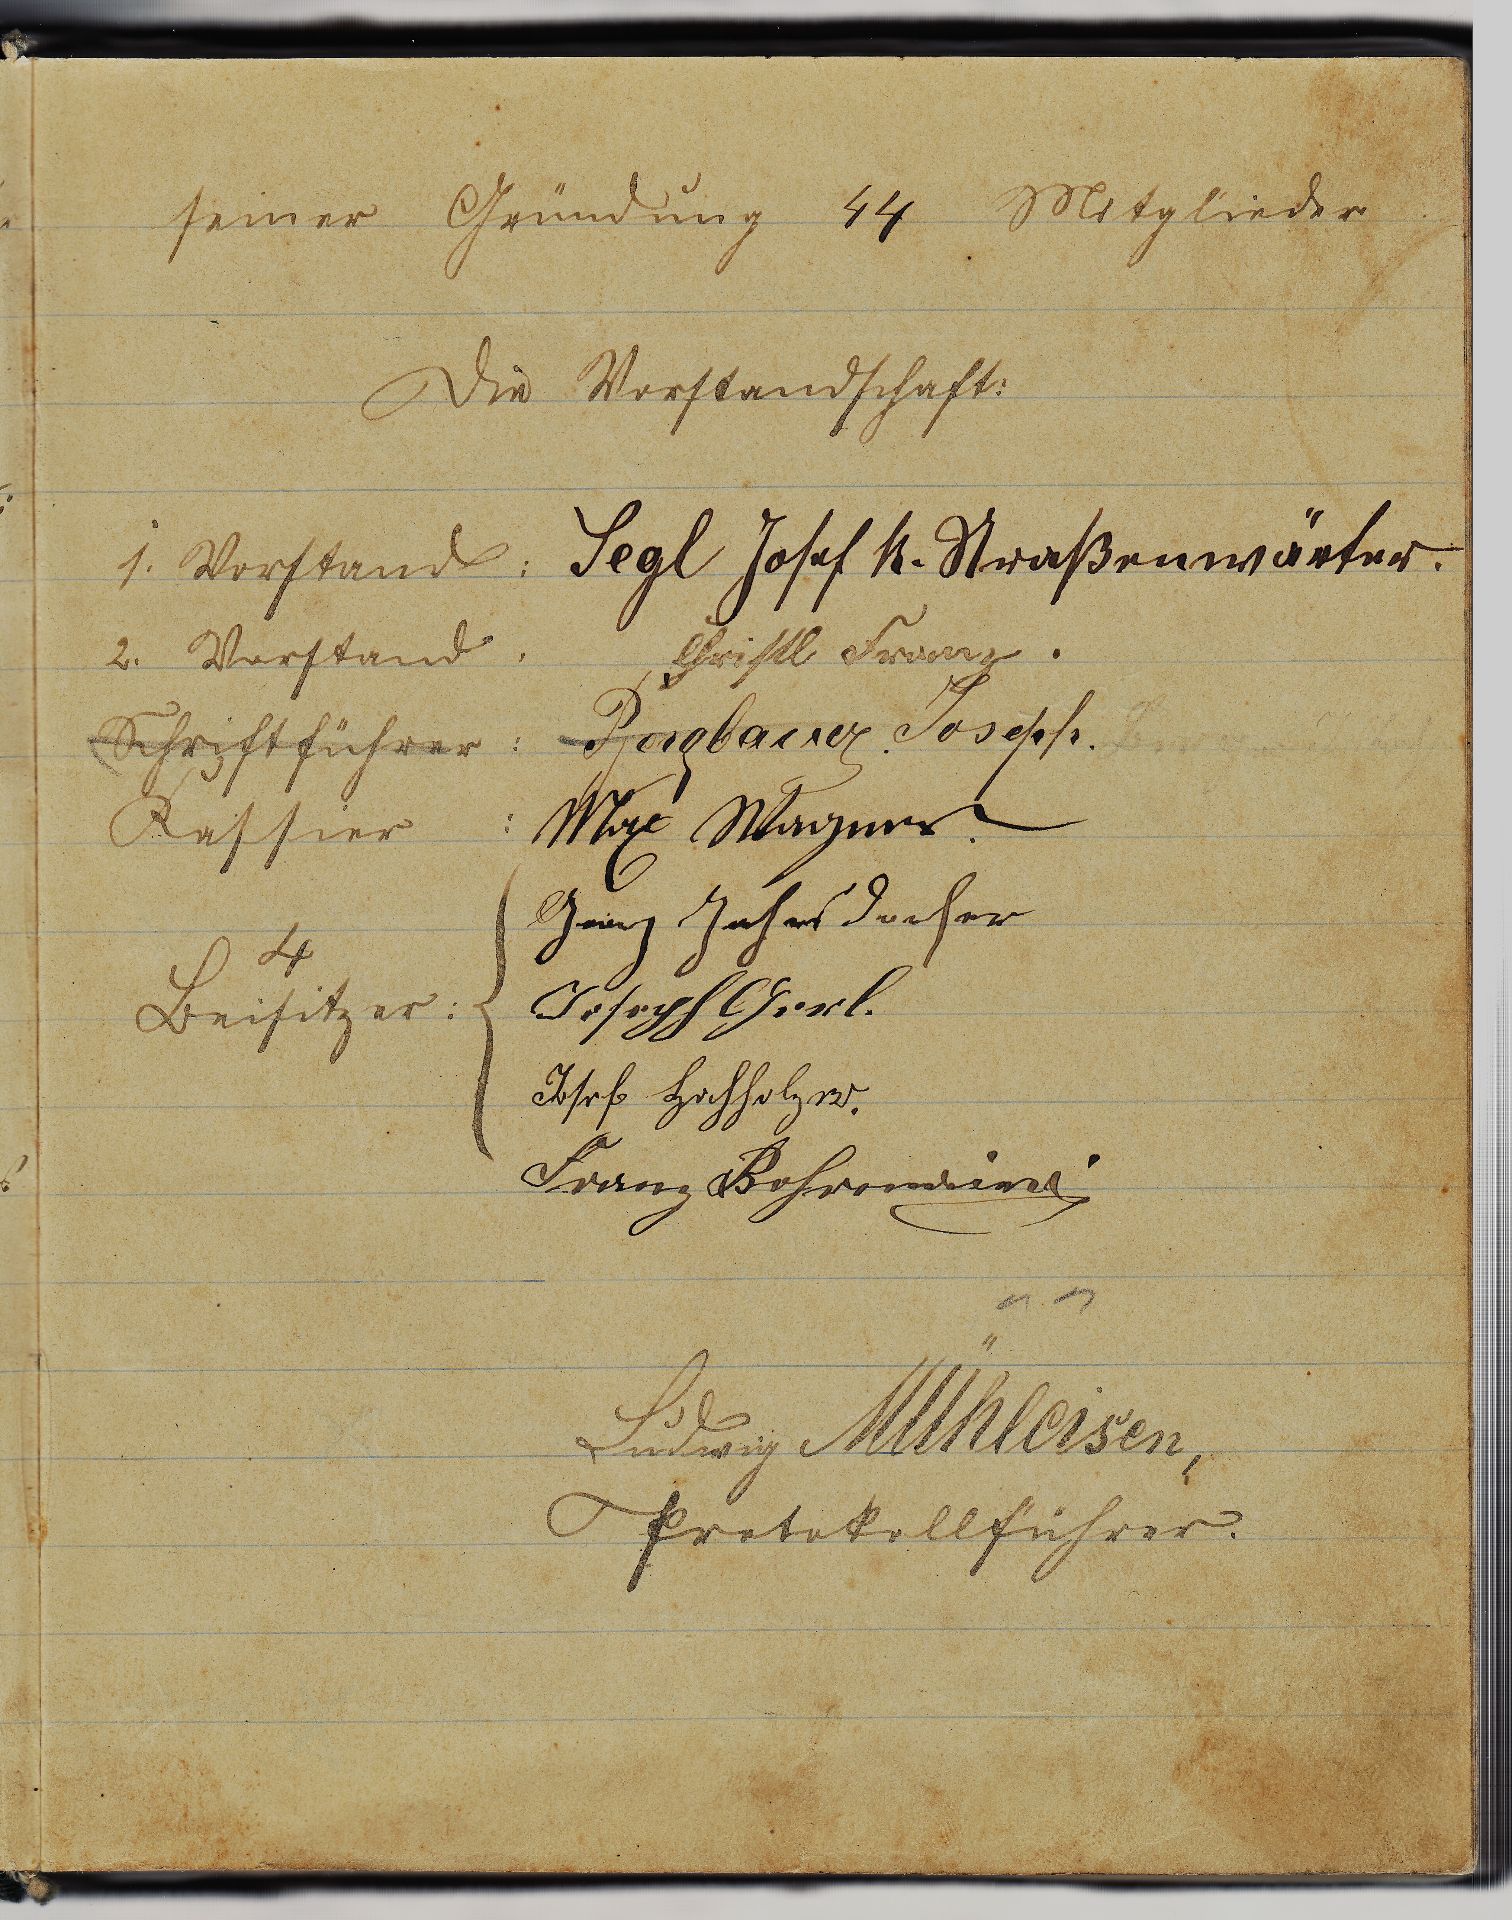 seiner Gründung 44 Mitglieder
Die Vorstandschaft:
1. Vorstand : Segl Josef k. Straßenwärter.
2. Vorstand : Christl Franz.
Schriftführer : Joseph.
Kassier : Max Wagner.
Georg
4
Beisitzer : Joseph Gerl.
Josef Hochholzer.
Franz
Ludwig Mühleisen,
Protokollführer.